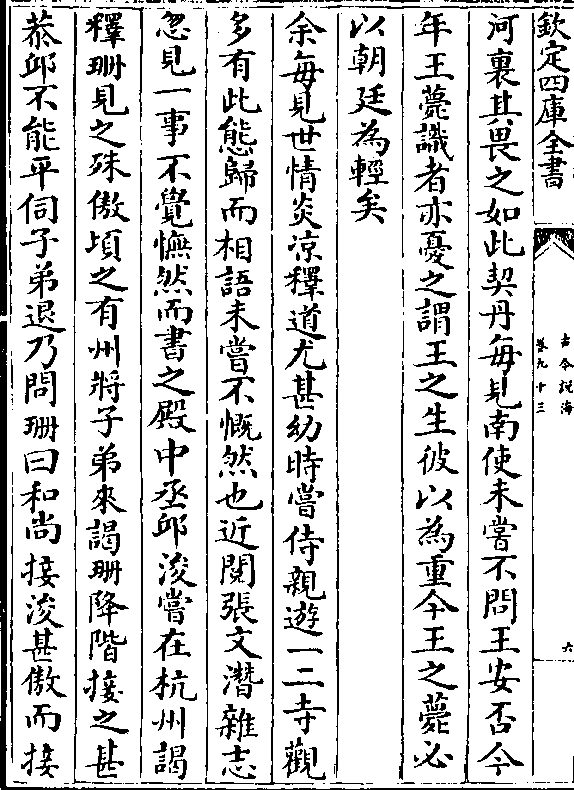 欽定四庫全書
古今説海
卷九十三
六
河裏其畏之如此契丹每見南使未嘗不問王安否今
年王薨識者亦憂之謂王之生彼以為重今王之薨必
以朝廷為輕矣
余每見世情炎凉釋道尤甚幼時嘗侍親遊一二寺觀
多有此態歸而相語未嘗不慨然也近閲張文潛雜志
忽見一事不覺憮然而書之殿中丞邱浚嘗在杭州謁
釋珊見之殊傲頃之有州將子弟來謁珊降階接之甚
恭邱不能平伺子弟退乃問珊曰和尚接浚甚傲而接